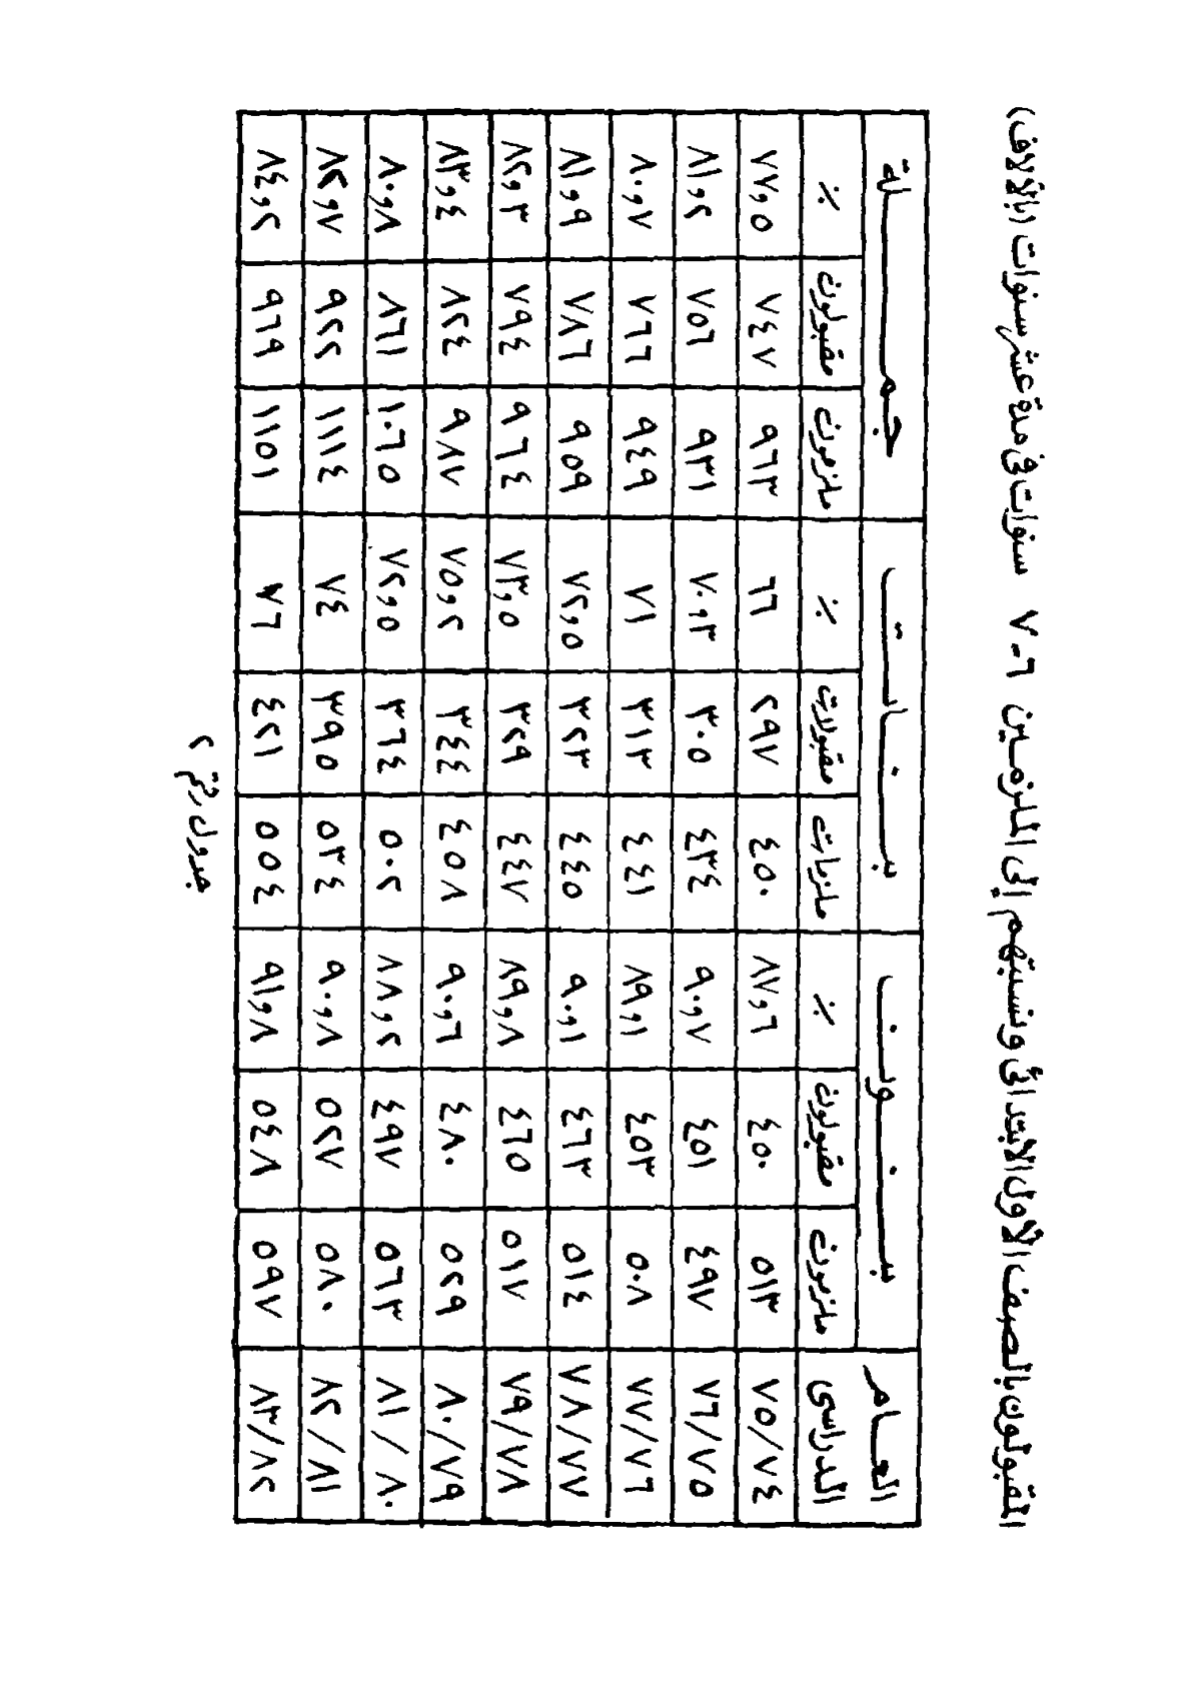 المقبولون بالصف الأول الابتدائى ونسبتهم إلى الملزمين ٦-٧ سنوات فى مدة عشر سنوات (بالآلاف)
العام الدراسى | بنون | بنات | جملة
ملزمون | مقبولون | ٪ | ملزمات | مقبولات | ٪ | ملزمون | مقبولون | ٪
٧٥/٧٤ | ٥١٣ | ٤٥٠ | ٨٧,٦ | ٤٥٠ | ٢٩٧ | ٦٦ | ٩٦٣ | ٧٤٧ | ٧٧,٥
٧٦/٧٥ | ٤٩٧ | ٤٥١ | ٩٠,٧ | ٤٣٤ | ٣٠٥ | ٧٠,٣ | ٩٣١ | ٧٥٦ | ٨١,٢
٧٧/٧٦ | ٥٠٨ | ٤٥٣ | ٨٩,١ | ٤٤١ | ٣١٣ | ٧١ | ٩٤٩ | ٧٦٦ | ٨٠,٧
٧٨/٧٧ | ٥١٤ | ٤٦٣ | ٩٠,١ | ٤٤٥ | ٣٢٣ | ٧٢,٥ | ٩٥٩ | ٧٨٦ | ٨١,٩
٧٩/٧٨ | ٥١٧ | ٤٦٥ | ٨٩,٨ | ٤٤٧ | ٣٢٩ | ٧٣,٥ | ٩٦٤ | ٧٩٤ | ٨٢,٣
٨٠/٧٩ | ٥٢٩ | ٤٨٠ | ٩٠,٦ | ٤٥٨ | ٣٤٤ | ٧٥,٢ | ٩٨٧ | ٨٢٤ | ٨٣,٤
٨١/٨٠ | ٥٦٣ | ٤٩٧ | ٨٨,٢ | ٥٠٢ | ٣٦٤ | ٧٢,٥ | ١٠٦٥ | ٨٦١ | ٨٠,٨
٨٢/٨١ | ٥٨٠ | ٥٢٧ | ٩٠,٨ | ٥٣٤ | ٣٩٥ | ٧٤ | ١١١٤ | ٩٢٢ | ٨٢,٧
٨٣/٨٢ | ٥٩٧ | ٥٤٨ | ٩١,٨ | ٥٥٤ | ٤٢١ | ٧٦ | ١١٥١ | ٩٦٩ | ٨٤,٢
جدول رقم ٢